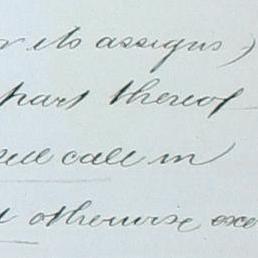 its assigns)
part thereof
call in
otherwise